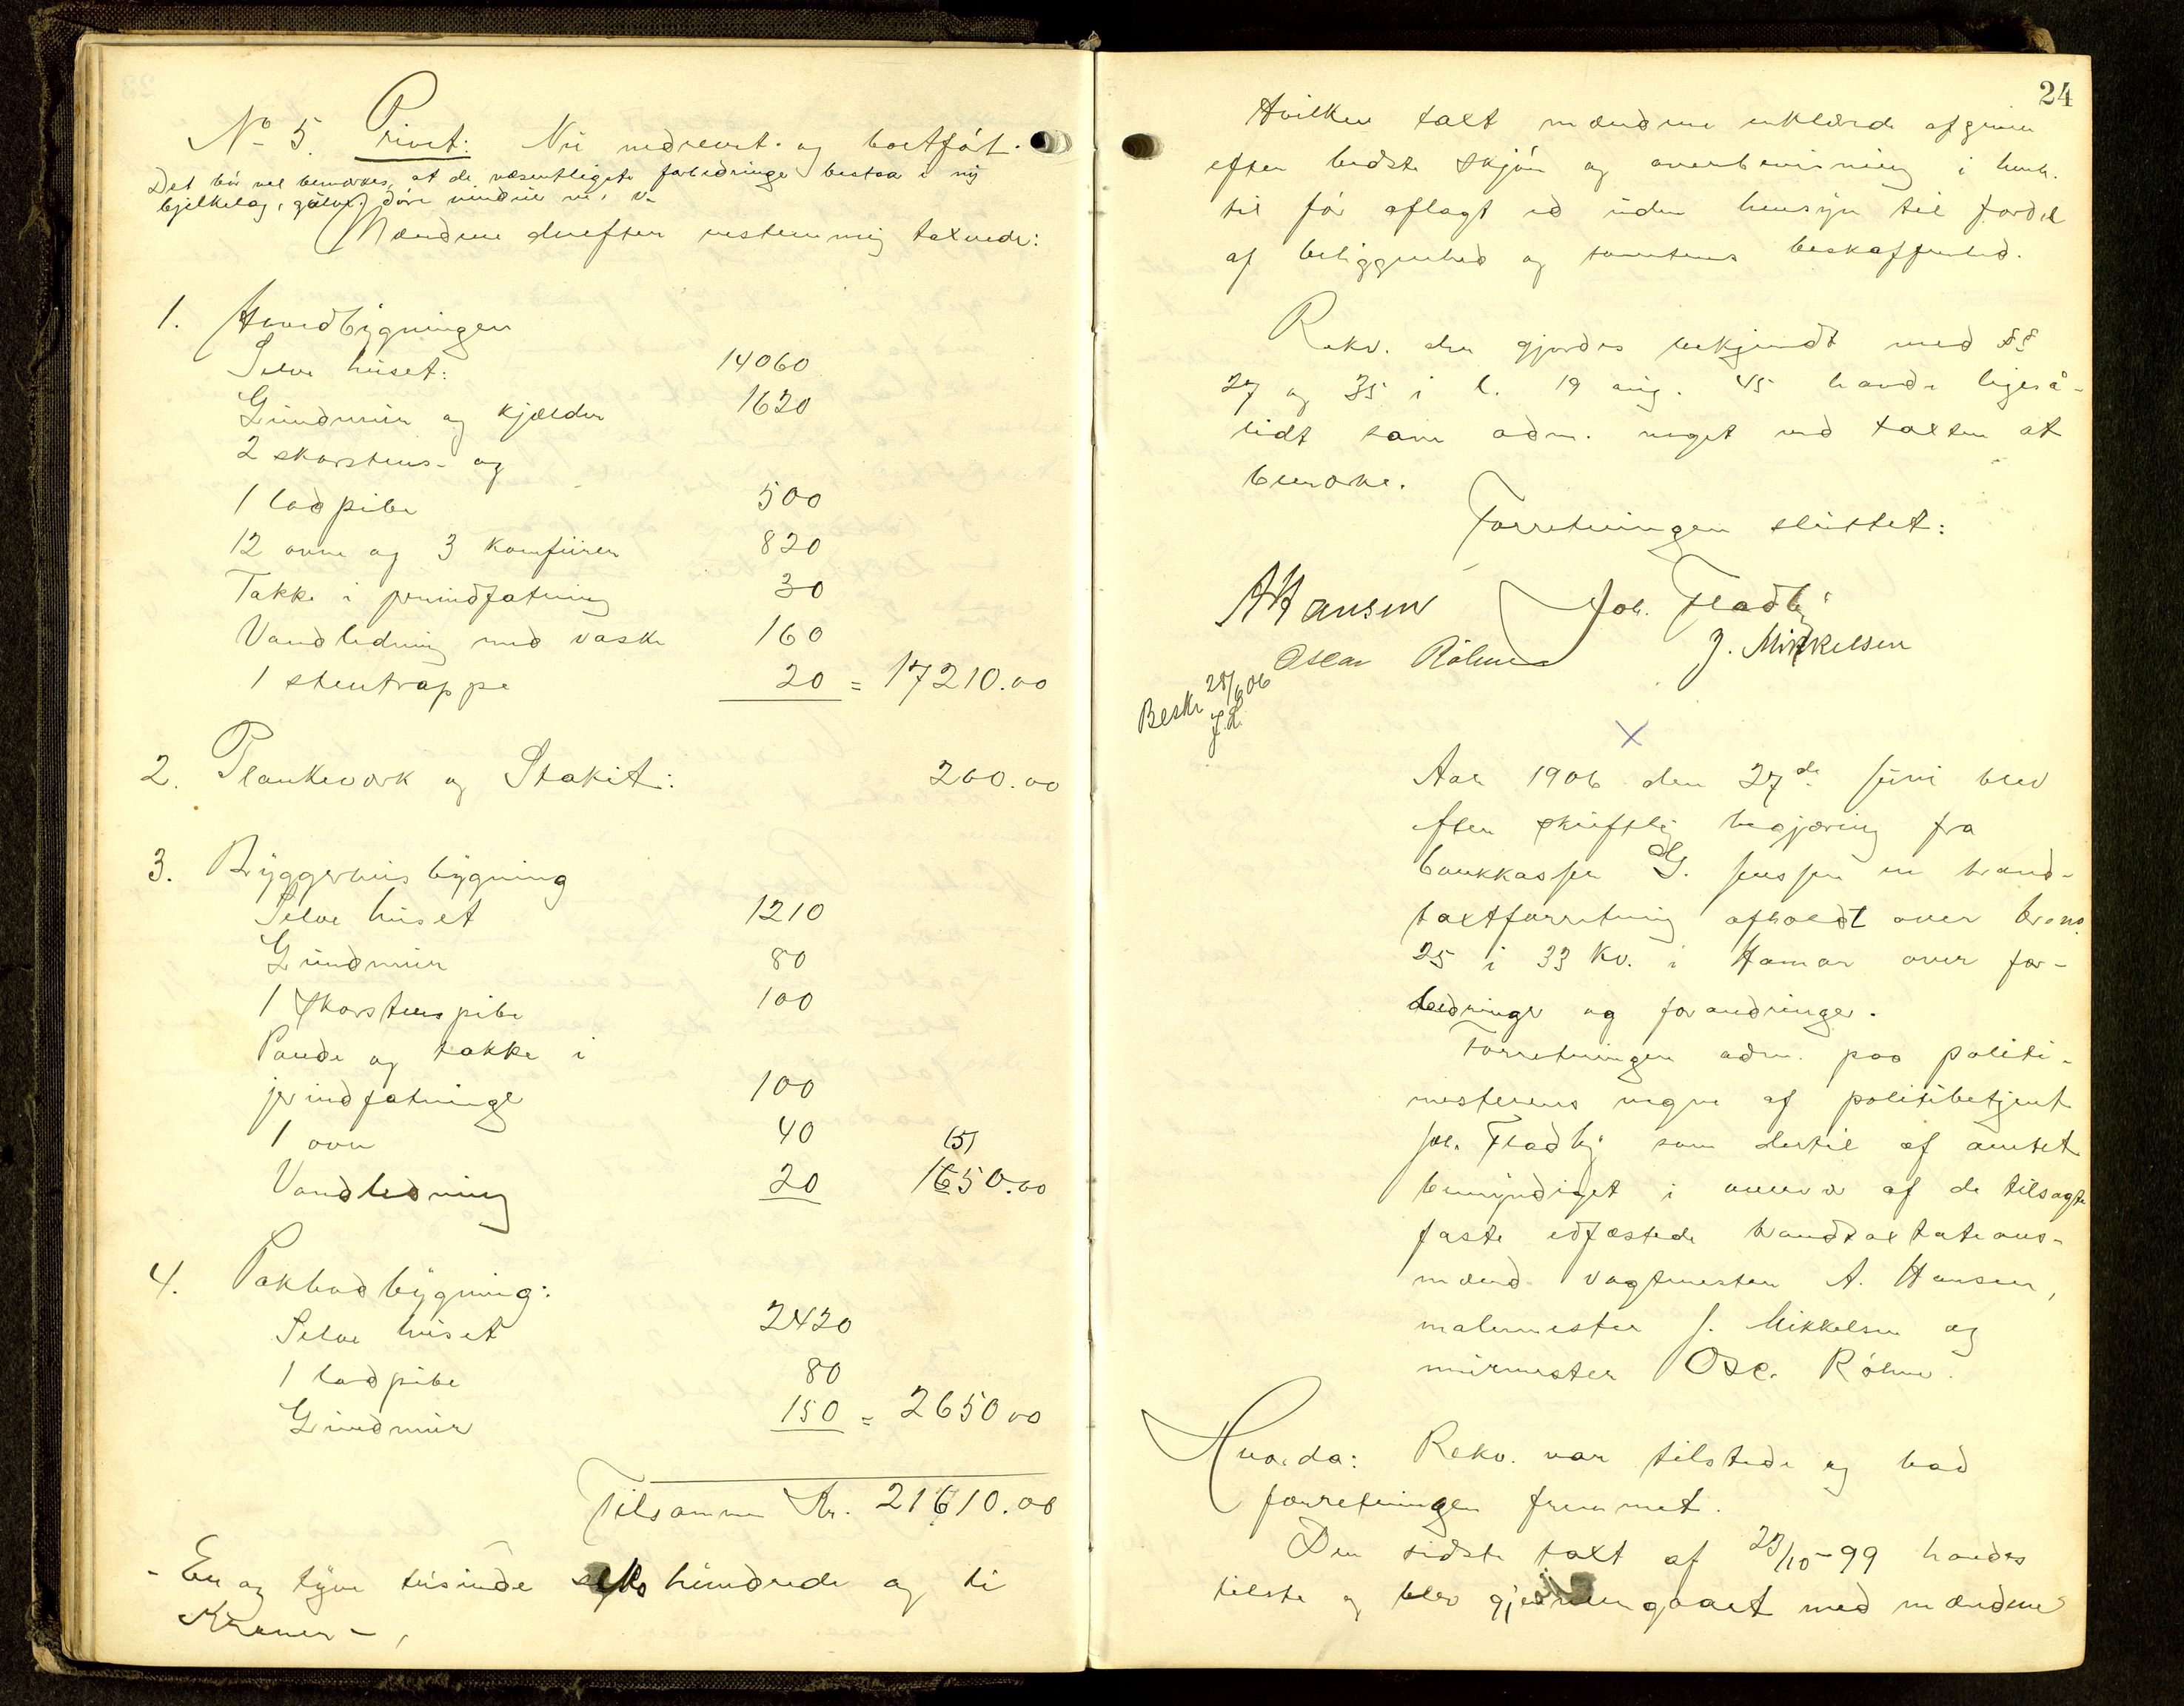 No 5. Privet: Nu nedrevet og bortført.
Det bør vel bemærkes, at de væsentligste forbedringe bestaa i ny
bjelkelag, gulve, døre vinduer m. v.
Mændene derefter enstemmig taxerede:
1. Hovedbygningen
Selve huset: 14060
Grundmur og kjælder 1620
2 skorstens- og
1 ladpibe 500
12 ovne og 3 komfurer 820
Takke i jernindfatning 30
Vandledning med vaske 160
1 stentrappe 20 = 17210.00
2. Plankeværk og Stakit: 200.00
3. Bryggerhusbygning
Selve huset 1210
Grundmur 80
1 skorstenspibe 100
Pande og takke i
jernindfatninge 100
1 ovn 40 (5)
Vandledning 20 1650.00
4. Pakbodbygning:
Selve huset 2420
1 ladpibe 80
Grundmur 150 = 2650 00
Tilsammen Kr. 21610.00
- En og tyve tusinde seks hundrede og ti
Kroner -,
24
Hvilken taxt mændene erklærede afgiven
efter bedste skjøn og overbevisning i henh.
til før aflagt ed uden hensyn til fordel
af beliggenhed og tomtens beskaffenhed.
Rekv. der gjordes bekjendt med §§
27 og 35 i l. 19 aug. 45 havde ligeså-
lidt som adm. noget ved taxten at
bemærke.
Forretningen sluttet:
A Hansen Joh. Fladby
Oscar Røhme J. Mikkelsen
Beskr 28/6 06
J.L.
x
Aar 1906 den 27de Juni blev
efter skriftlig begjæring fra
bankkasser G. Jenssen en brand-
taxtforretning afholdt over br. no.
25 i 33 Kv. i Hamar over for-
bedringer og forandringer.
Forretningen adm. paa politi-
mesterens vegne af politibetjent
Joh. Fladby som dertil af amtet
bemyndiget i overvær af de tilsagte
faste edfæstede brandtaxtations-
mænd vagtmester A. Hansen,
malermester J. Mikkelsen og
murmester Osc. Røhme.
Hvorda: Rekv. var tilstede og bad
forretningen fremmet.
Den sidste taxt af 23/10-99 havdes
tilste og blev gjennemgaaet med mændene